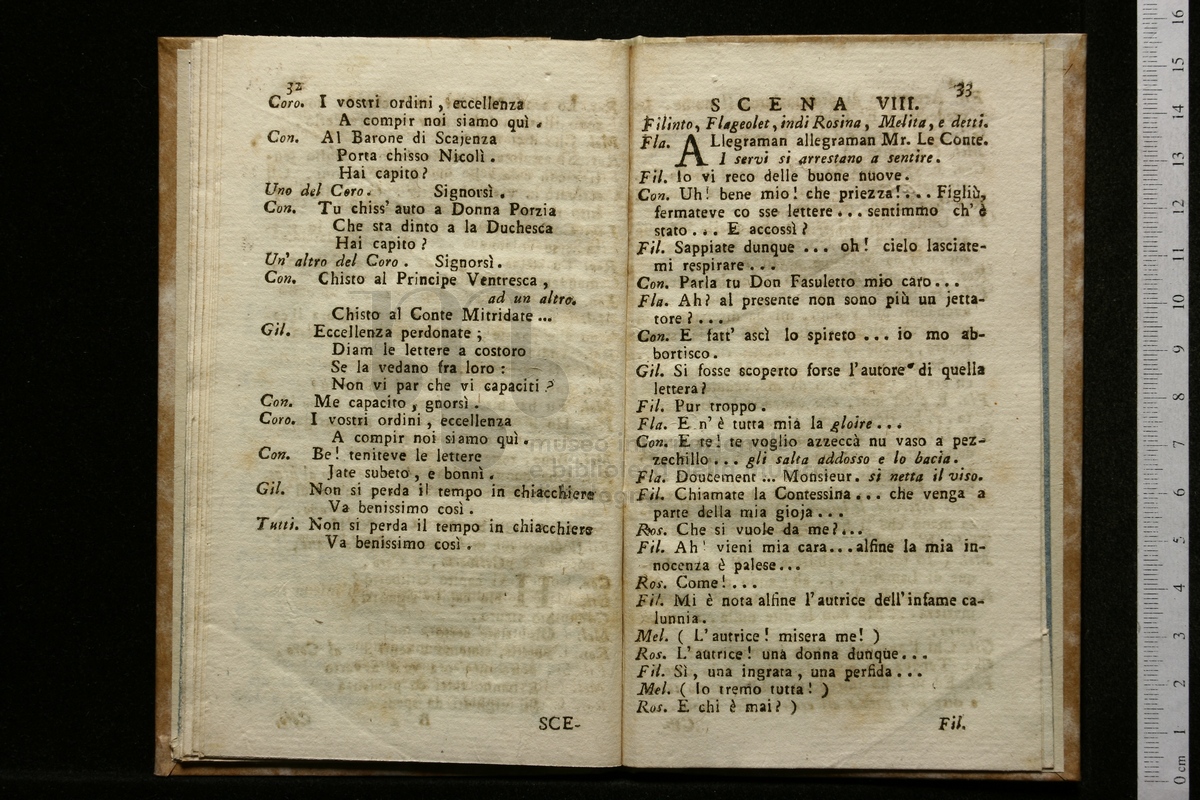 32
Coro. I vostri ordini, eccellenza
A compir noi siamo quì.
Con. Al Barone di Scajenza
Porta chisso Nicolì.
Hai capito?
Uno del Coro. Signorsì.
Con. Tu chiss' auto a Donna Porzia
Che sta dinto a la Duchesca
Hai capito?
Un' altro del Coro. Signorsì.
Con. Chisto al Principe Ventresca,
ad un altro.
Chisto al Conte Mitridate...
Gil. Eccellenza perdonate;
Diam le lettere a costoro
Se la vedano fra loro:
Non vi par che vi capaciti?
Con. Me capacito, gnorsì.
Coro. I vostri ordini, eccellenza
A compir noi siamo quì.
Con. Be! teniteve le lettere
Jate subeto, e bonnì.
Gil. Non si perda il tempo in chiacchiere
Va benissimo così.
Tutti. Non si perda il tempo in chiacchiere
Va benissimo così.
SCE-
33
SCENA VIII.
Filinto, Flageolet, indi Rosina, Melita, e detti.
Fla. ALlegraman allegraman Mr. Le Conte.
I servi si arrestano a sentire.
Fil. Io vi reco delle buone nuove.
Con. Uh! bene mio! che priezza!... Figliù,
fermateve co sse lettere... sentimmo ch' è
stato... E accossì?
Fil. Sappiate dunque... oh! cielo lasciate-
mi respirare...
Con. Parla tu Don Fasuletto mio caro...
Fla. Ah? al presente non sono più un jetta-
tore?...
Con. E fatt' ascì lo spireto... io mo ab-
bortisco.
Gil. Si fosse scoperto forse l'autore di quella
lettera?
Fil. Pur troppo.
Fla. E n' è tutta mia la gloire...
Con. E te! te voglio azzeccà nu vaso a pez-
zechillo... gli salta addosso e lo bacia.
Fla. Doucement... Monsieur. si netta il viso.
Fil. Chiamate la Contessina... che venga a
parte della mia gioja...
Ros. Che si vuole da me?...
Fil. Ah! vieni mia cara...alfine la mia in-
nocenza è palese...
Ros. Come!...
Fil. Mi è nota alfine l'autrice dell'infame ca-
lunnia.
Mel. (L'autrice! misera me!)
Ros. L'autrice! una donna dunque...
Fil. Sì, una ingrata, una perfida...
Mel. (Io tremo tutta!)
Ros. E chi è mai?)
Fil.
0 cm 1 2 3 4 5 6 7 8 9 10 11 12 13 14 15 16